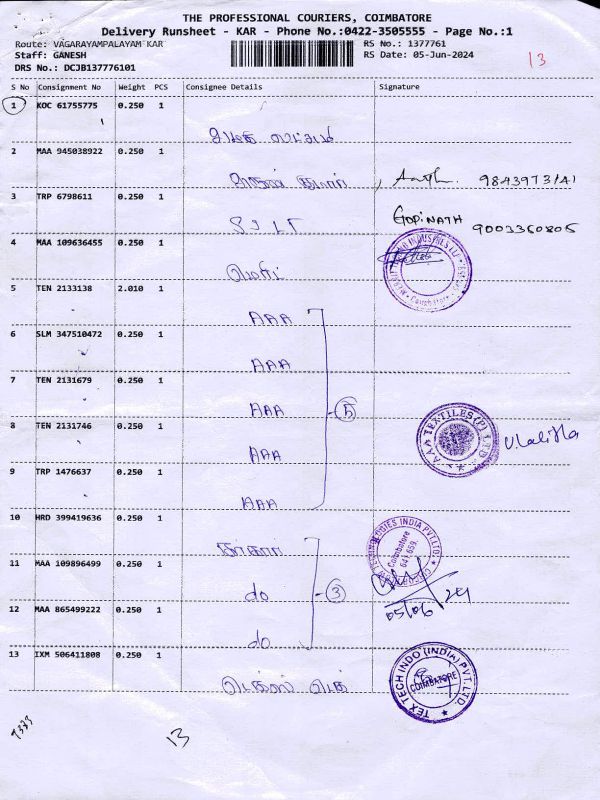 THE PROFESSIONAL COURIERS, COIMBATORE
Delivery Runsheet - KAR - Phone No.:0422-3505555 - Page No.:1
Route: VAGARAYAMPALAYAM KAR
RS No.: 1377761
Staff: GANESH
RS Date: 05-Jun-2024
DRS No.: DCJB137776101
13
S No Consignment No Weight PCS Consignee Details Signature
1 KOC 61755775 0.250 1
2 MAA 945038922 0.250 1
3 TRP 6798611 0.250 1
GOPINATH 9003360805
4 MAA 109636455 0.250 1
5 TEN 2133138 2.010 1
AAA
6 SLM 347510472 0.250 1
AAA
7 TEN 2131679 0.250 1
AAA
5
8 TEN 2131746 0.250 1
AAA
AAA TEXTILES(P) LTD
V.Lalitha
9 TRP 1476637 0.250 1
AAA
10 HRD 399419636 0.250 1
INDIA PVT.LTD.
Coimbatore
641 659.
11 MAA 109896499 0.250 1
do
3
05/06/24
12 MAA 865499222 0.250 1
do
13 IXM 506411808 0.250 1
டெக்ஸ் டெக்
TEX TECH INDO (INDIA) PVT. LTD.
COIMBATORE
13